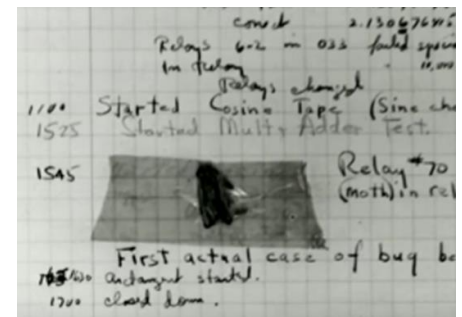 conect 2.130676415
Relays 6-2 in 033 failed special
In Relay 10,000
Relays changed
1100 Started Cosine Tape (Sine che
1525 Started Mult + Adder Test.
1545 Relay #70
(moth) in rel
First actual case of bug be
1630 arctangent started.
1700 closed down.